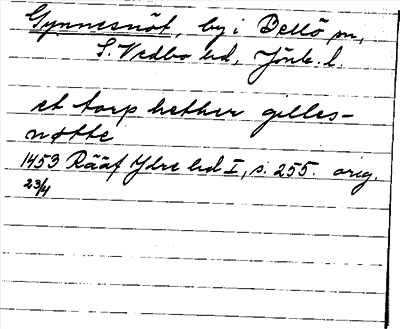 Gynnesnöt, by i Bellö sn,
S. Vedbo hd, Jönk. l.
et torp hether gilles-
nøtte
1453 Rääf Ydre hd I, s. 255. orig.
23/4